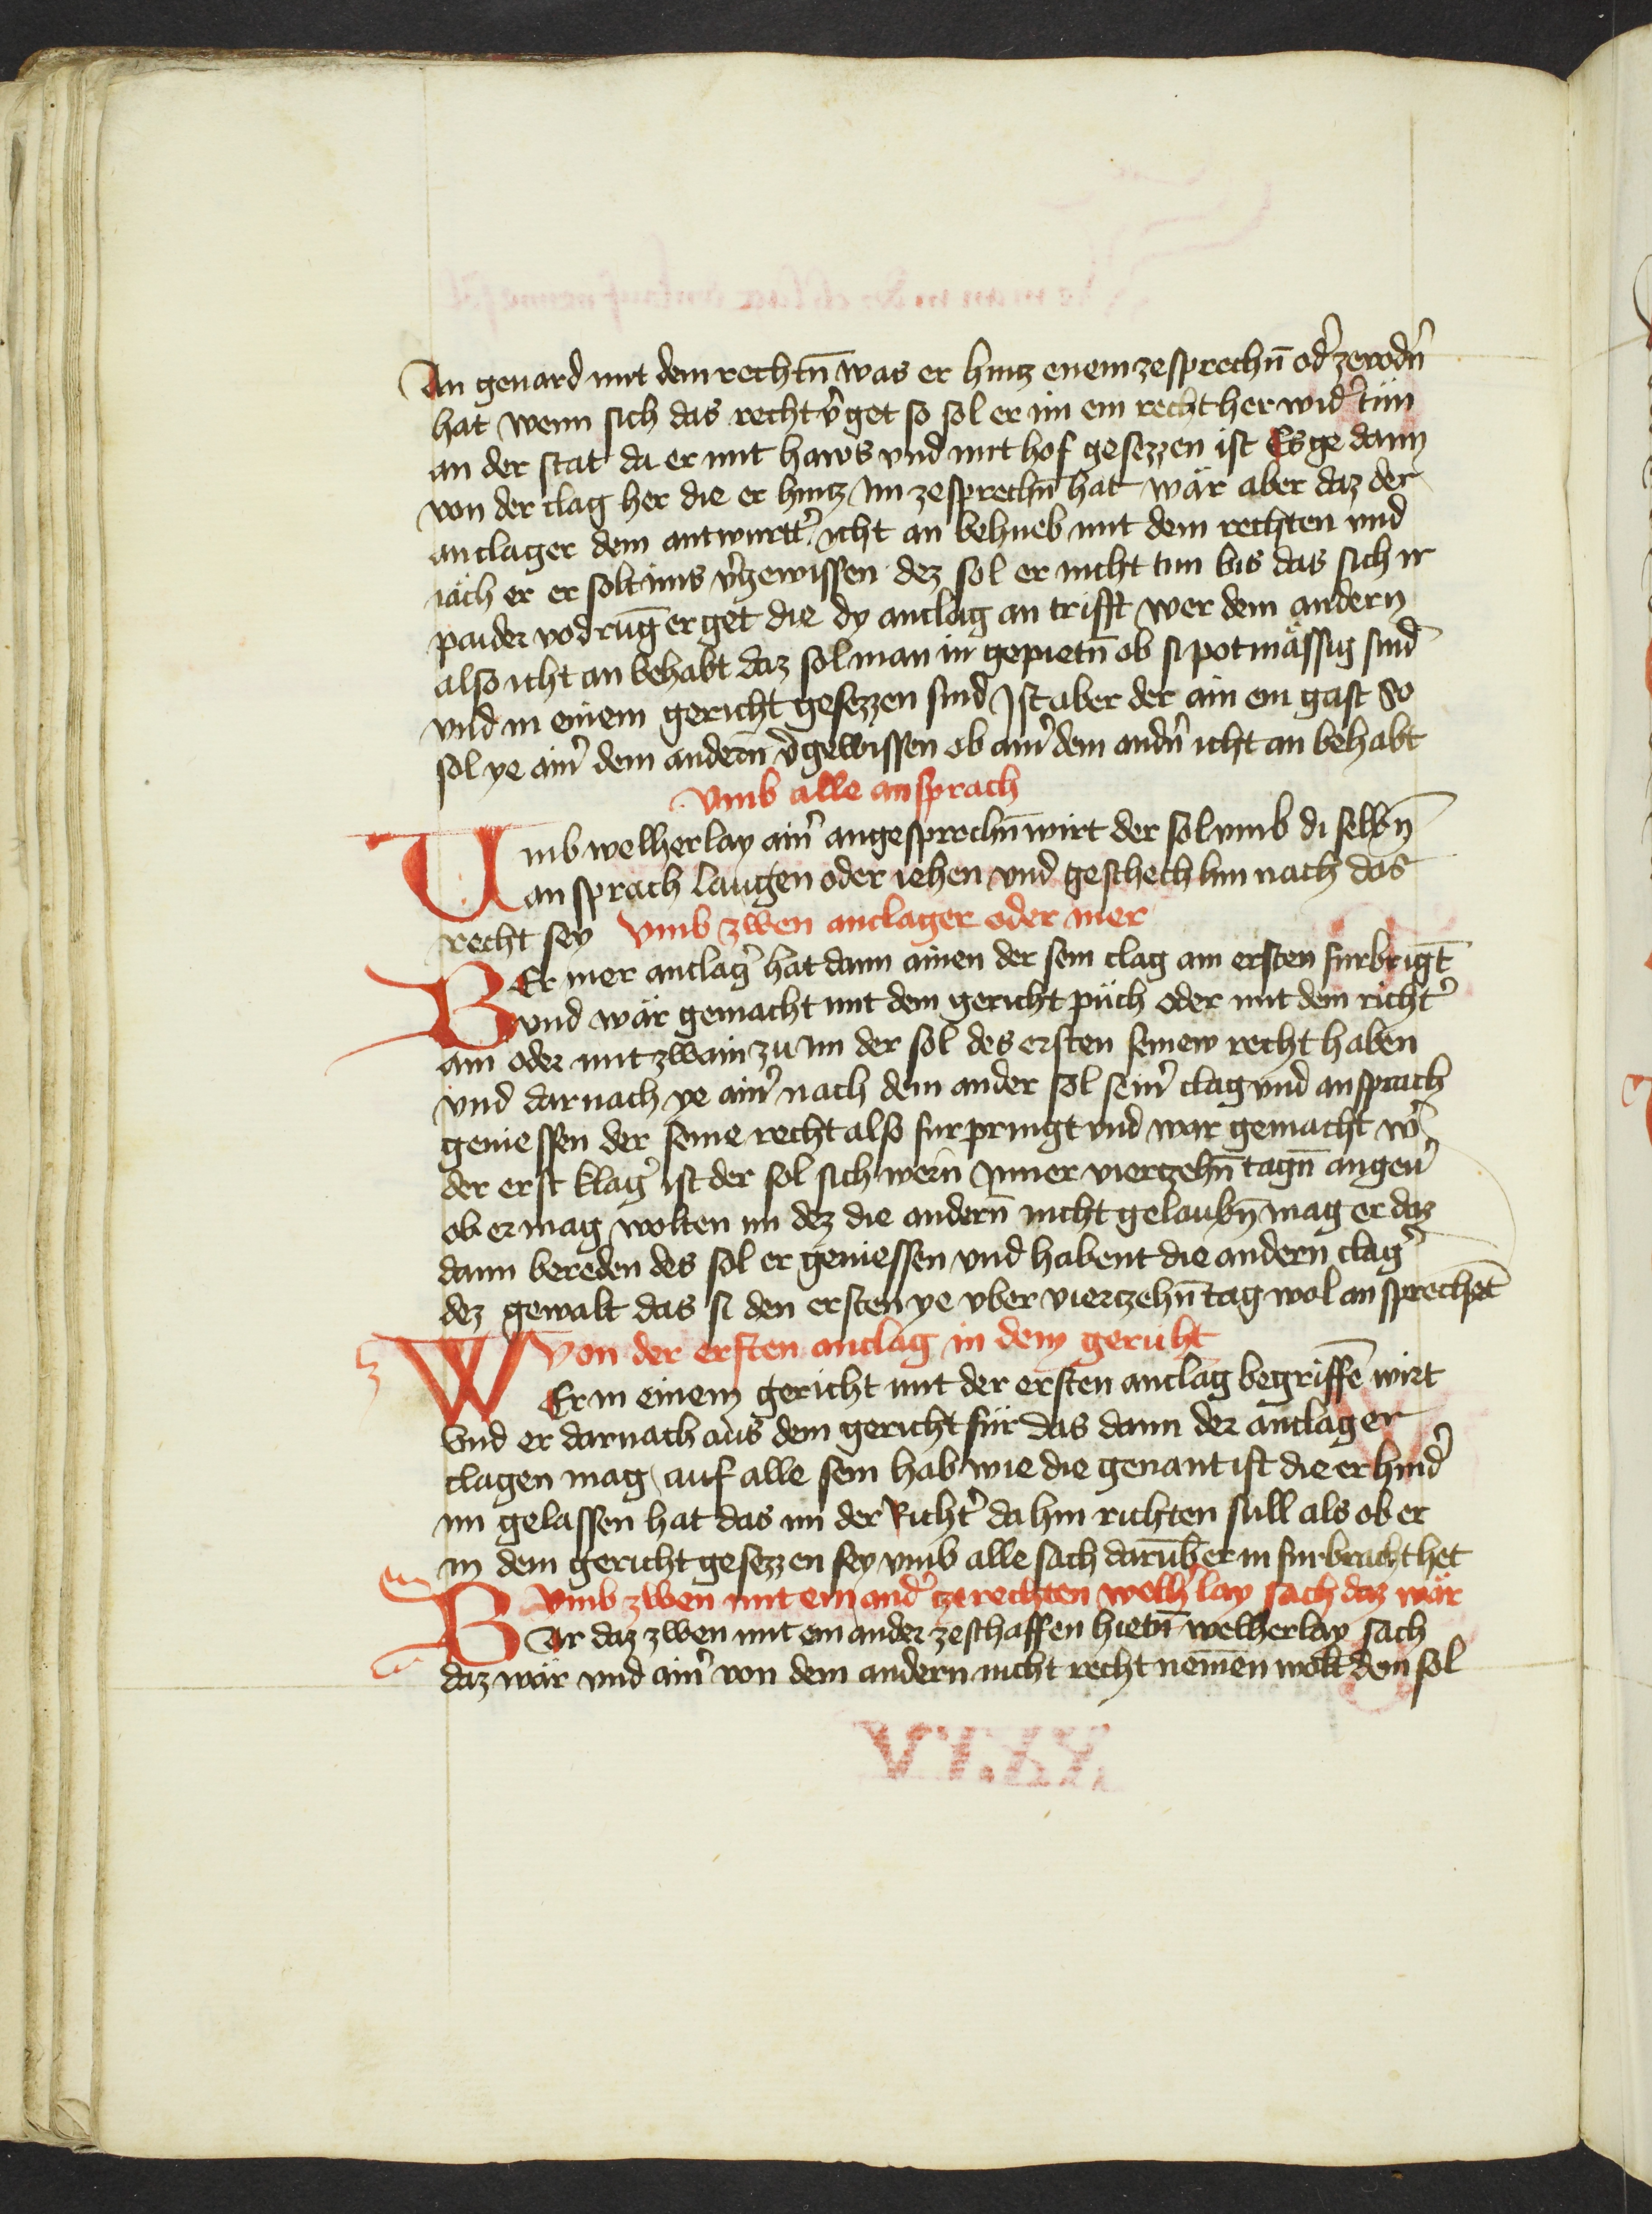 An genard mit dem rechtn̄ was er hintz enem zesprechn̄ od̉ zevodn̉
hat wenn sich das recht v̉get so sol er im ein recht her wid̉ tün
an der stat da er mit haws vnd mit hof gesezzen ist Es ge dann
von der clag her die er hintz Im zesprechn̄ hat wär aber daz der
anclager dem antwurtt̉ icht an behueb mit dem rechten vnd
iäch er er solt ims v̉gewissen dez sol er nicht tun bis das sich ir
paider vodrūg erget die dy anclag an trifft wer dem andern
also icht an behabt daz sol man in gepietn̄ ob si potmässig sind
vnd in einem gericht gesezzen sind Ist aber der ain ein gast So
sol ye ain̉ dem andern̄ v̉gewissen ob ain̉ dem andn̉ icht an behabt
Vmb alle ansprach
Umb welherlay ain̉ angesprochn̄ wirt der sol vmb di selbn̄
an sprach laugen oder iehen vnd geschech hin nach das
recht sey Vmb zwen anclager oder mer
BEr mer anclag̉ hat dann ainen der sein clag am ersten furbrīgt
vnd wär gemacht mit dem gericht püch oder mit dem richt̉
ain oder mit zwain zu im der sol des ersten seinew recht haben
vnd darnach ye ain̉ nach dem ander sol sein̉ clag vnd ansprach
geniessen der seine recht also furpringt vnd war gemacht w̉
der erst klag̉ ist der sol sich wern̄ Inner viertzehn̄ tagn̄ angeủ
ob er mag wolten im dez die andern̄ nicht gelaubn̄ mag er daz
dann bereden des sol er geniessen vnd habent die andern clag̉
dez gewalt das si den ersten ye vber viertzehn̄ tag wol an sprechēt
Von der ersten anclag in dem gericht
WEr in einem gericht mit der ersten anclag begriffē wirt
Vnd er darnach aus dem gericht für das dann der anclager
clagen mag auf alle sein hab wie die genant ist die er hind̉
im gelassen hat das im der Richt̉ da hin richten sull als ob er
in dem gericht gesezzen sey vmb alle sach darūb er in furbracht het
Vmb zwen mit einand̉ tzerechten welh̉ lay sach daz wär
BAr daz zwen mit einander zeschaffen hietn̄ welherlay sach
daz wär vnd ain̉ von dem andern nicht recht nemen wolt dem sol